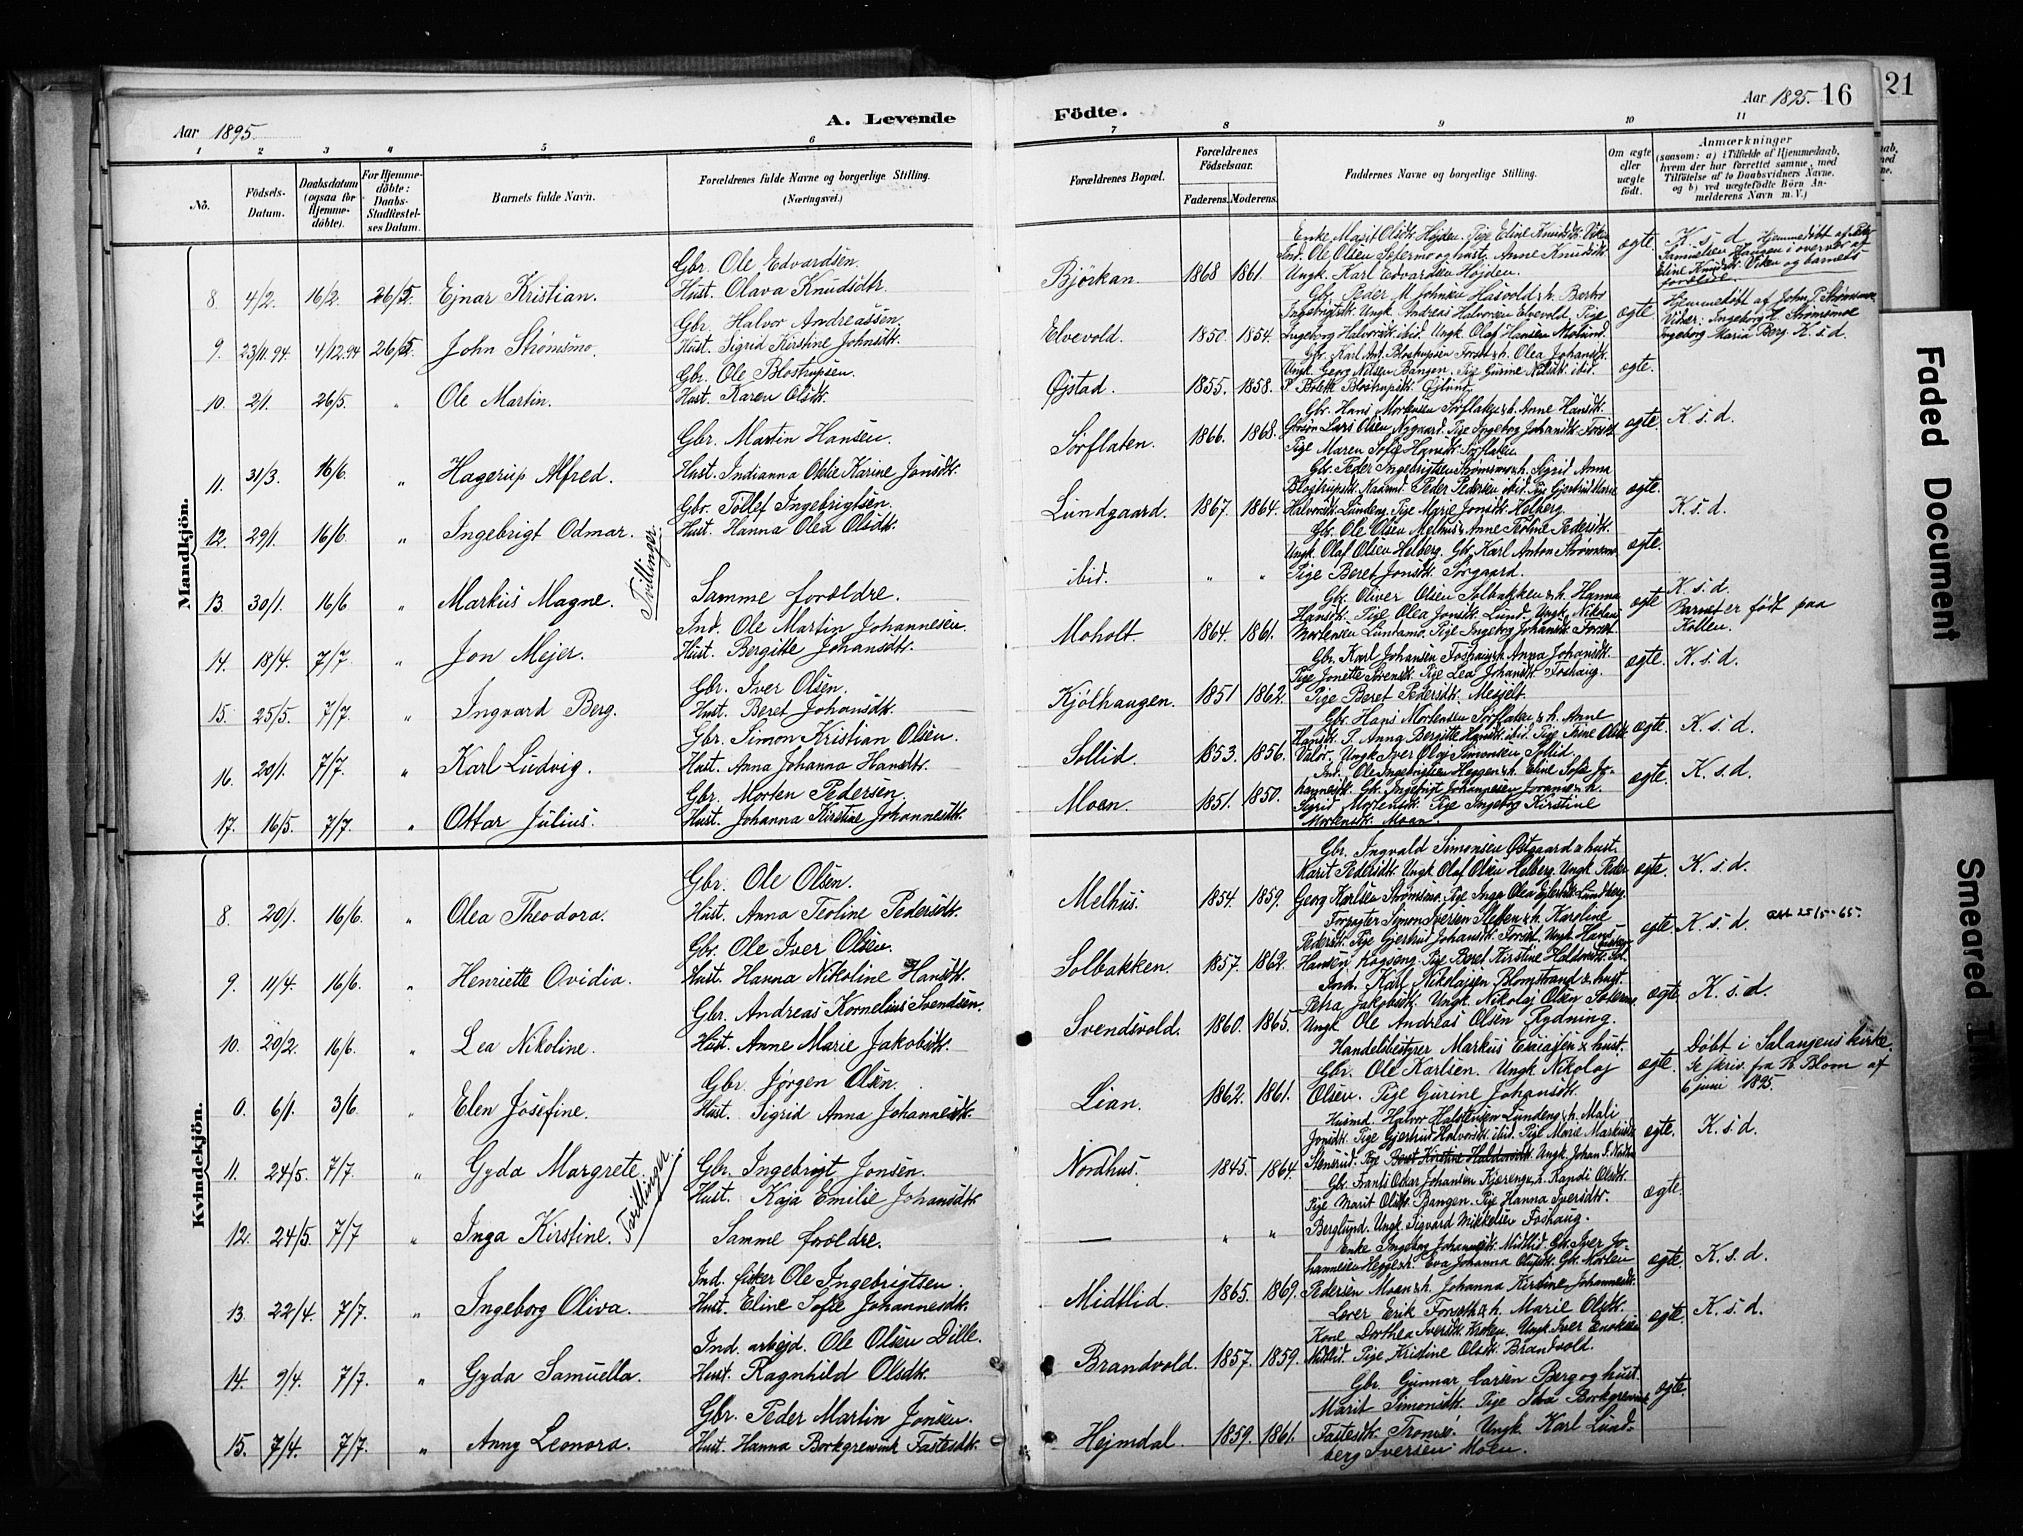 Aar 1895.
A. Levende
Födte.
Aar 1895. 16
21
1 2 3 4 5 6 7 8 9 10 11
No.
Födsels-Datum.
Daabsdatum (ogsaa for Hjemmedøbte).
For Hjemmedøbte: Daabs-Stadfæstelses Datum.
Barnets fulde Navn.
Forældrenes fulde Navne og borgerlige Stilling. (Næringsvei.)
Forældrenes Bopæl.
Forældrenes Födselsaar.
Faderens. Moderens.
Faddernes Navne og borgerlige Stilling.
Om ægte eller uægte født.
Anmærkninger
(saasom: a) i Tilfælde af Hjemmedaab, hvem der har forrettet samme, med Tilføielse af to Daabsvidners Navne, og b) ved uægtefödte Börn Anmelderens Navn m. V.)
Mandkjön.
8. 4/2. 16/2. 26/5. Ejnar Kristian. Gbr. Ole Edvardsen. Hust. Olava Knudsdtr. Bjørkan. 1868 1861.
Enke Marit Olsdtr. Højden. Pige Eline Knudsdtr. Viken
Ind. Ole Olsen Sætermo og hust. Anne Knudsdtr.
Ungk. Karl Edvardsen Højden.
ægte K. s. d. Hjemmedøbt af
Eline Knudsdtr. Viken og barnets forældre.
9. 23/11.94 4/12.94 26/5. John Strømsmo. Gbr. Halvor Andreassen. Hust. Sigrid Kirstine Johnsdtr. Elvevold. 1850. 1854.
Gbr. Peder M. Johnsen Hasvold & h. Berbo
Ingebrigtsdtr. Ungk. Andreas Halvorsen Elvevold. Pige
Ingeborg Halvorsdtr. ibid. Ungk. Olaf Hansen Moslund.
ægte Hjemmedøbt af John P. Strømsmo.
Vidner: Ingeborg A. Strømsmoe
Ingeborg Maria Berg. K. s. d.
10. 2/1. 26/5. " Ole Martin. Gbr. Ole Blostrupsen. Hust. Karen Olsdtr. Øjstad. 1855. 1858.
Gbr. Karl Ant. Blostrupsen Forset & h. Olea Johansdtr.
Ungk. Georg Nilsen Bangen. Pige Gurine Nilsdtr. ibid.
P. Bolette Blostrupsdtr. Øjlund.
ægte.
11. 31/3. 16/6. " Hagerup Alfred. Gbr. Martin Hansen. Hust. Indianna Odtte Karine Jonsdtr. Sørflaten. 1866. 1868.
Gbr. Hans Mortensen Sørflaten & h. Anne Hansdtr.
Lars Olsen Nygaard. Pige Ingeborg Johansdtr. Forset
Pige Maren Sofie Hansdtr. Sørflaten
ægte. K. s. d.
12. 29/1. 16/6 " Ingebrigt Odmar. Gbr. Tollef Ingebrigtsen. Hust. Hanna Olea Olsdtr. Lundgaard. 1867. 1864.
Gbr. Peder Ingebrigtsen Strømsmo & h. Sigrid Anna
Blostrupsdtr. Peder Pedersen ibid. Pige Gjertrud Marie
Halvorsdtr. Lundeng. Pige Marie Jonsdtr. Helberg.
ægte. K. s. d.
Tvillinger.
13 30/1. 16/6 " Markus Magne. Samme forældre. ibid. " "
Gbr. Ole Olsen Melhus & Anne Teoline Pedersdtr.
Ungk. Olaf Olsen Helberg. Gbr. Karl Anton Strømsmo.
Pige Beret Jonsdtr. Sørgaard.
ægte.
14. 18/4. 7/7. " Jon Mejer. Ind. Ole Martin Johannesen. Hust. Bergitte Johansdtr. Moholt. 1864. 1861.
Gbr. Oliver Olsen Solbakken & h. Hanna
Hansdtr. Pige Olea Jonsdtr. Lund. Ungk. Nikolai
Mortensen Lundamo. Pige Ingeborg Johansdtr. Forset
ægte K. s. d.
Barnet er født paa Kollen.
15. 25/5. 7/7. " Ingvard Berg. Gbr. Iver Olsen. Hust. Beret Johansdtr. Kjølhaugen. 1851 1862.
Gbr. Karl Johansen Foshaug & h. Anna Johansdtr.
Pige Jonette Sørensdtr. Pige Lea Johansdtr. Foshaug.
Pige Beret Pedersdtr. Messelt.
ægte. K. s. d.
16. 20/1. 7/7. " Karl Ludvig. Gbr. Simon Kristian Olsen. Hust. Anna Johanna Hansdtr. Sollid. 1853. 1856.
Gbr. Hans Mortensen Sørflaten & h. Anne
Hansdtr. P. Anna Bergitte Hansdtr. ibid. Pige Trine Olsdtr.
Valør. Ungk. Iver Olaj Simonsen Sollid.
ægte. K. s. d.
17. 16/5. 7/7. " Ottar Julius. Gbr. Morten Pedersen. Hust. Johanna Kirstine Johannesdtr. Moan. 1851. 1850.
Ind. Ole Ingebrigtsen Heggen & h. Eline Sofie Johannesdtr.
Gbr. Ingebrigt Johannesen & h.
Sigrid Mortensdtr. Pige Ingeborg Kirstine
Mortensdtr. Moan.
ægte. K. s. d.
Kvindekjön.
8. 20/1. 16/6. " Olea Theodora. Gbr. Ole Olsen. Hust. Anna Teoline Pedersdtr. Melhus. 1854. 1859.
Gbr. Ingvald Simonsen Østgaard & hust.
Marit Pedersdtr. Ungk. Olaf Olsen Helberg. Ungk. Peder
Georg Karlsen Strømsmo. Pige Inga Olea Lundberg.
ægte. K. s. d.
9. 11/4. 16/6. " Henriette Ovidia. Gbr. Ole Iver Olsen. Hust. Hanna Nikoline Hansdtr. Solbakken. 1857. 1862.
Forpagter Simon Iversen Sletten & h. Karoline
Pedersdtr. Pige Gjertrud Johansdtr. Forset. Ungk. Hans
Hansen Kogseng. Pige Beret Kirstine Haldorsdtr.
ægte K. s. d. 25/5-65.
10. 20/2. 16/6. " Lea Nikoline. Gbr. Andreas Kornelius Svendsen. Hust. Anne Marie Jakobsdtr. Svendsvold. 1860. 1865.
Ind. Karl Nikolajsen Blomstrand & hust.
Petra Jakobsdtr. Ungk. Nikolaj Olsen Sætermo.
Ungk. Ole Andreas Olsen Rydning.
ægte. K. s. d.
0. 6/1. 3/6. " Elen Josefine. Gbr. Jørgen Olsen. Hust. Sigrid Anna Johannesdtr. Lian. 1862. 1861.
Handelsbestyrer Markus Esaiasen & hust.
Gbr. Ole Karlsen. Ungk. Nikolaj
Olsen. Pige Gurine Johansdtr.
ægte Døbt i Salangens kirke.
Se skriv. fra Pr. Blom af
6 juni 1895.
11. 24/5. 7/7. " Gyda Margrete. Gbr. Ingebrigt Jonsen. Hust. Kaja Emilie Johansdtr. Nordhus. 1845. 1864.
Husmd. Halvor Halstensen Lundeng & h. Mali
Jonsdtr. Pige Gjertrud Halvorsdtr. ibid. Pige Marie Markusdtr.
Stensrud. Pige Beret Kirstine Haldorsdtr. Ungk. Johan S.
ægte. K. s. d.
Tvillinger.
12. 24/5. 7/7 " Inga Kirstine. Samme forældre. — " "
Gbr. Frants Oskar Johansen Kjæreng & h. Randi Olsdtr.
Pige Marit Olsdtr. Bangen. Pige Hanna Iversdtr.
Berglund. Ungk. Sigvard Mikkelsen Foshaug.
ægte.
13 22/4. 7/7. " Ingeborg Oliva. Ind. fisker Ole Ingebrigtsen. Hust. Eline Sofie Johannesdtr. Midtlid. 1865. 1869.
Enke Ingeborg Johannesdtr. Midtlid. Gbr. Iver Johannesen
Hegge & h. Eva Johanna Olufsdtr. Gbr. Morten
Pedersen Moan & h. Johanna Kirstine Johannesdtr.
ægte. K. s. d.
14. 9/4. 7/7. " Gyda Samuella. Ind. arbejd. Ole Olsen Dille. Hust. Ragnhild Olsdtr. Brandvold. 1857. 1859.
Lever Erik Forseth & h. Marie Olsdtr.
Kone Dorthea Iversdtr. Kroken. Ungk. Iver Enoksen
Midtlid. Pige Kristine Olsdtr. Brandvold.
ægte. K. s. d.
15. 7/4. 7/7. " Anny Leonora. Gbr. Peder Martin Jonsen. Hust. Hanna Borkgrevink Fastesdtr. Hejmdal. 1859. 1861.
Gbr. Gunnar Larsen Berg og hust.
Marit Simonsdtr. Pige Ida Borkgrevink
Fastesdtr. Tromsø. Ungk. Karl Lundberg
Iversen Moen.
ægte.
Faded Document
Smeared Ink